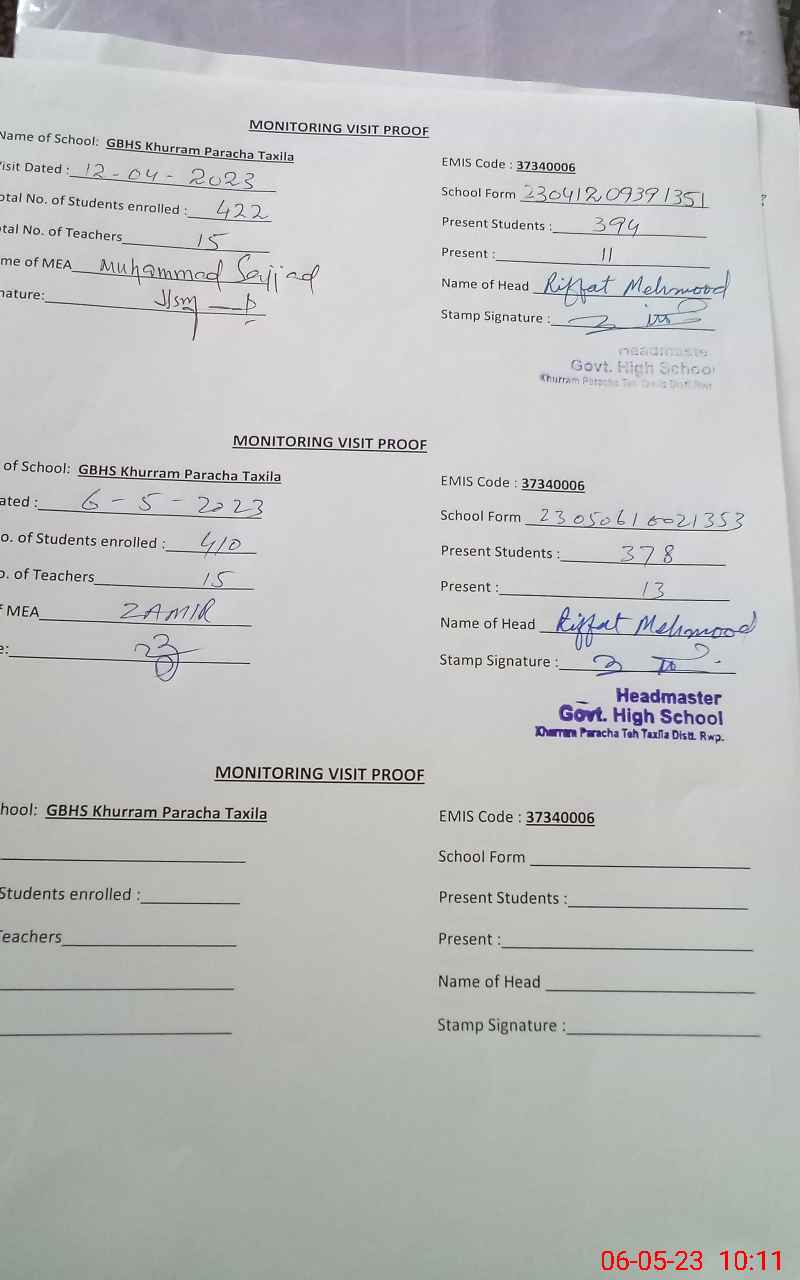 MONITORING VISIT PROOF
Name of School: GBHS Khurram Paracha Taxila
EMIS Code : 37340006
isit Dated : 12-04-2023
School Form 23041209391351
?
otal No. of Students enrolled : 422
Present Students : 394
tal No. of Teachers 15
Present : 11
me of MEA Muhammad Sajjad
Name of Head Riffat Mehmood
nature:
Stamp Signature :
Headmaste
Govt. High School
Khurram Paracha Teh Taxila Distt Rwp
MONITORING VISIT PROOF
of School: GBHS Khurram Paracha Taxila
EMIS Code : 37340006
ated : 6-5-2023
School Form 23050610021353
o. of Students enrolled : 410
Present Students : 378
o. of Teachers 15
Present : 13
MEA ZAMIR
Name of Head Riffat Mehmood
e:
Stamp Signature :
Headmaster
Govt. High School
Khurram Paracha Teh Taxila Distt. Rwp.
MONITORING VISIT PROOF
hool: GBHS Khurram Paracha Taxila
EMIS Code : 37340006
School Form
Students enrolled :
Present Students :
eachers
Present :
Name of Head
Stamp Signature :
06-05-23 10:11